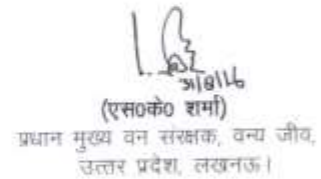 31/8/16
(एस०के० शर्मा)
प्रधान मुख्य वन संरक्षक, वन्य जीव,
उत्तर प्रदेश, लखनऊ।